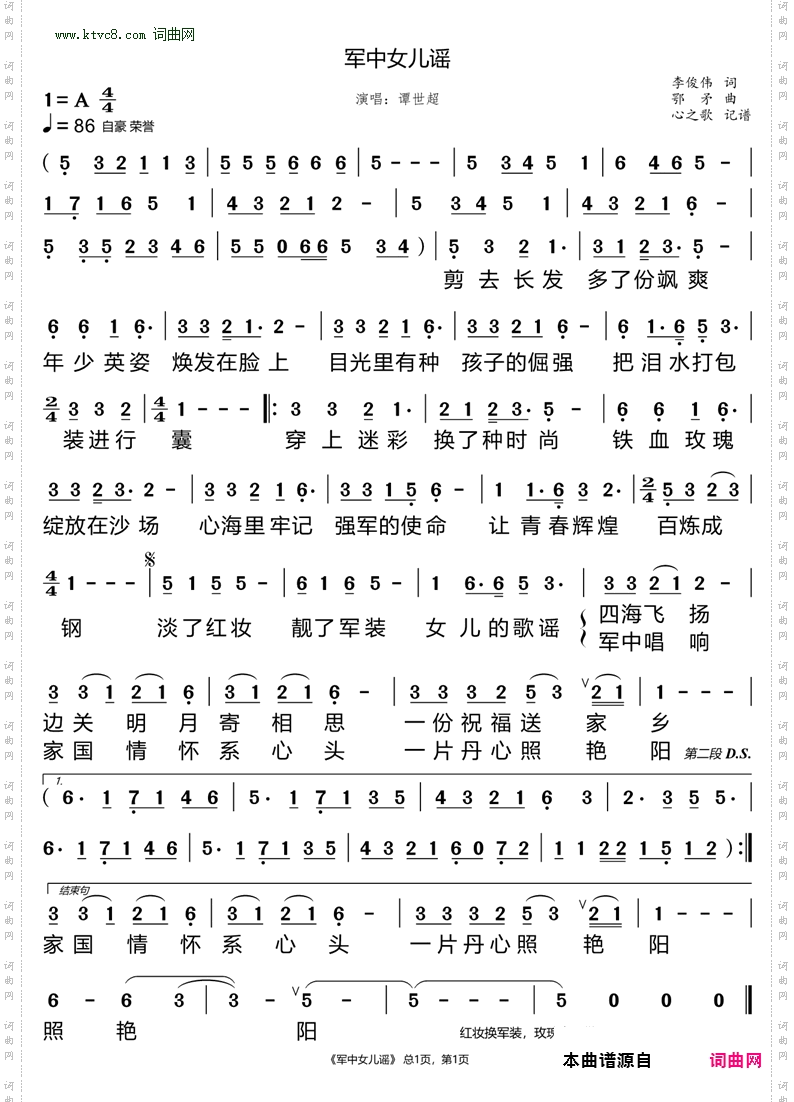 www.ktvc8.com 词曲网
军中女儿谣
1= A 4/4
演唱：谭世超
李俊伟 词
鄂 矛 曲
心之歌 记谱
♩= 86 自豪 荣誉
( 5 3 2 1 1 3 | 5 5 5 6 6 6 | 5 - - - | 5 3 4 5 1 | 6 4 6 5 - |
1 7 1 6 5 1 | 4 3 2 1 2 - | 5 3 4 5 1 | 4 3 2 1 6 - |
5 3 5 2 3 4 6 | 5 5 0 6 6 5 3 4 ) | 5 3 2 1· | 3 1 2 3· 5 - |
剪 去 长 发 多了份飒 爽
6 6 1 6· | 3 3 2 1· 2 - | 3 3 2 1 6· | 3 3 2 1 6 - | 6 1· 6 5 3· |
年 少 英 姿 焕发在脸 上 目光里有种 孩子的倔强 把 泪 水打包
2/4 3 3 2 | 4/4 1 - - - |: 3 3 2 1· | 2 1 2 3· 5 - | 6 6 1 6· |
装进行 囊 穿 上 迷 彩 换了种时 尚 铁 血 玫 瑰
3 3 2 3· 2 - | 3 3 2 1 6· | 3 3 1 5 6 - | 1 1· 6 3 2· | 2/4 5 3 2 3 |
绽放在沙 场 心海里牢记 强军的使命 让 青 春辉煌 百炼成
4/4 1 - - - | 5 1 5 5 - | 6 1 6 5 - | 1 6· 6 5 3· | 3 3 2 1 2 - |
钢 淡了红妆 靓了军装 女 儿 的歌谣 四海飞 扬
军中唱 响
3 3 1 2 1 6 | 3 1 2 1 6 - | 3 3 3 2 5 3 2 1 | 1 - - |
边 关 明 月 寄 相 思 一份祝福送 家 乡
家 国 情 怀 系 心 头 一片丹心照 艳 阳 第二段 D.S.
1.
( 6· 1 7 1 4 6 | 5· 1 7 1 3 5 | 4 3 2 1 6 3 | 2· 3 5 5· |
6· 1 7 1 4 6 | 5· 1 7 1 3 5 | 4 3 2 1 6 0 7 2 | 1 1 2 2 1 5 1 2 ) :|
结束句
3 3 1 2 1 6 | 3 1 2 1 6 - | 3 3 3 2 5 3 2 1 | 1 - - |
家 国 情 怀 系 心 头 一片丹心照 艳 阳
6 - 6 3 | 3 - - 5 - | 5 - - - | 5 0 0 0 ‖
照 艳 阳
红妆换军装，玫
《军中女儿谣》 总1页，第1页
本曲谱源自 词曲网